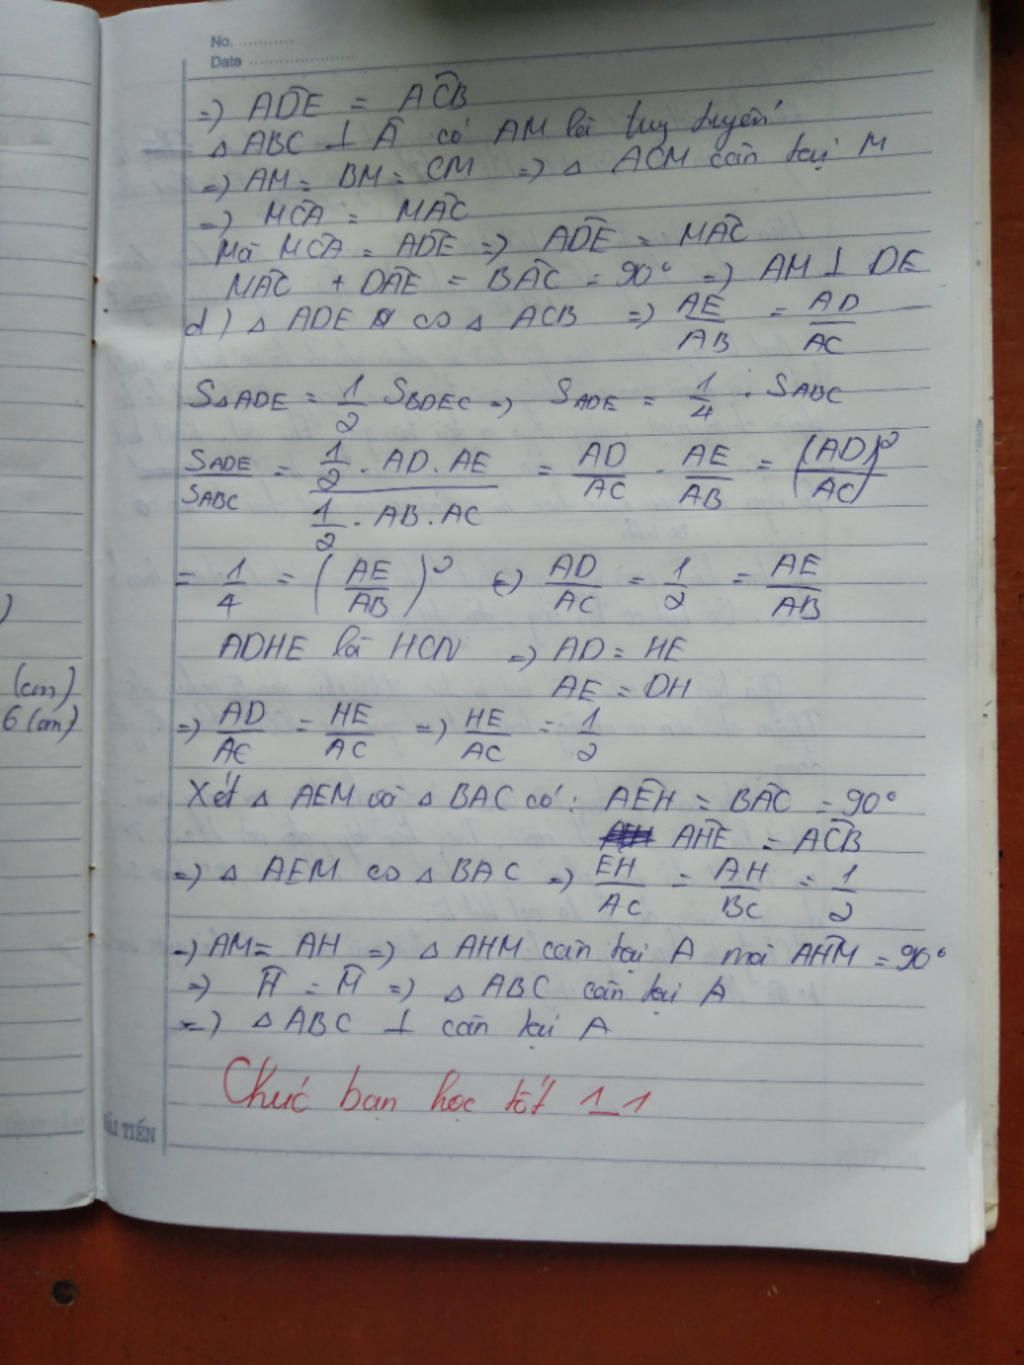 No. ............
Date .....................
=> ADÊ = AĈB
△ ABC ⊥ A có AM là tuy tuyến
=> AM = BM = CM => △ ACM cân tại M
=> MĈA = MÂC
Mà MĈA = AD̂E => AD̂E = MÂC
MÂC + DÂE = BÂC = 90° => AM ⊥ DE
d) △ ADE ∽ △ ACB => AE/AB = AD/AC
S△ADE = 1/2 SBDEC => SADE = 1/4 . SABC
SADE/SABC = (1/2 . AD . AE)/(1/2 . AB . AC) = AD/AC . AE/AB = (AD/AC)²
= 1/4 = (AE/AB)² <=> AD/AC = 1/2 = AE/AB
ADHE là HCN => AD = HE
AE = DH
=> AD/AC = HE/AC => HE/AC = 1/2
Xét △ AEM và △ BAC có: AÊH = BÂC = 90°
AĤE = AĈB
=> △ AEM ∽ △ BAC => EH/AC = AH/BC = 1/2
=> AM = AH => △ AHM cân tại A mà AĤM = 90°
=> Ĥ = M̂ => △ ABC cân tại A
=> △ ABC ⊥ cân tại A
Chúc bạn học tốt 1_1
(cm)
6 (cm)
)
ẢI TIẾN